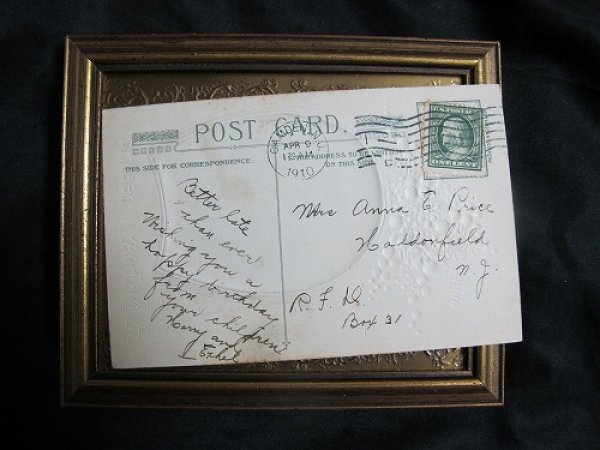 POST CARD.
THIS SIDE FOR CORRESPONDENCE.
ON THIS SIDE
APR 9
AM
1910
ONE CENT
Better late
than ever
Wishing you a
happy birthday
from
your children
Harry and
Ethel
Mrs Anna E Price
Haddonfield
N. J.
R. F. D.
Box 31